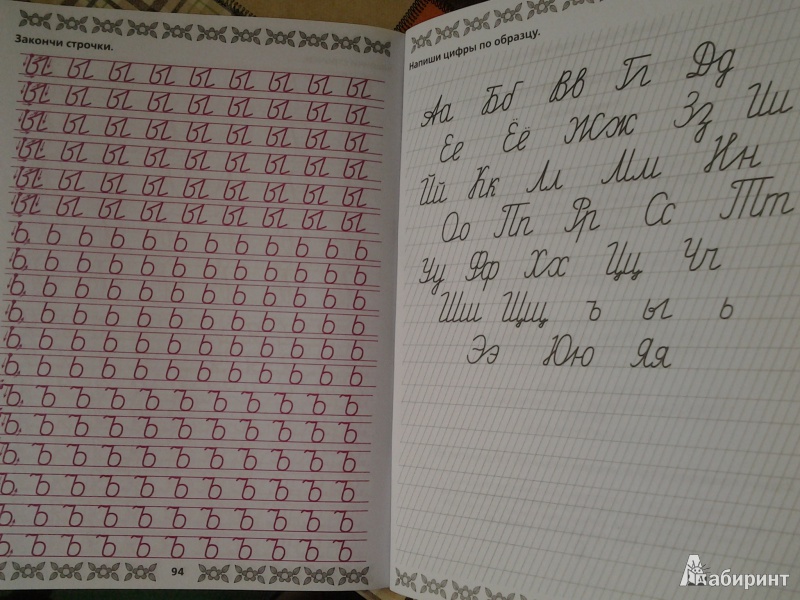 Закончи строчки.
ы ы ы ы ы ы ы ы ы
ы ы ы ы ы ы ы ы ы
ы ы ы ы ы ы ы ы ы
ы ы ы ы ы ы ы ы ы
ы ы ы ы ы ы ы ы ы
ы ы ы ы ы ы ы ы ы
ь ь ь ь ь ь ь ь ь ь ь ь
ь ь ь ь ь ь ь ь ь ь ь ь
ь ь ь ь ь ь ь ь ь ь ь ь
ь ь ь ь ь ь ь ь ь ь ь ь
ь ь ь ь ь ь ь ь ь ь ь ь
ь ь ь ь ь ь ь ь ь ь ь ь
ъ ъ ъ ъ ъ ъ ъ ъ ъ ъ ъ
ъ ъ ъ ъ ъ ъ ъ ъ ъ ъ ъ
ъ ъ ъ ъ ъ ъ ъ ъ ъ ъ ъ
ъ ъ ъ ъ ъ ъ ъ ъ ъ ъ ъ
ъ ъ ъ ъ ъ ъ ъ ъ ъ ъ ъ
ъ ъ ъ ъ ъ ъ ъ ъ ъ ъ ъ
94
Напиши цифры по образцу.
Аа Бб Вв Гг Дд
Ее Ёё Жж Зз Ии
Йй Кк Лл Мм Нн
Оо Пп Рр Сс Тт
Уу Фф Хх Цц Чч
Шш Щщ ъ ы ь
Ээ Юю Яя
Лабиринт